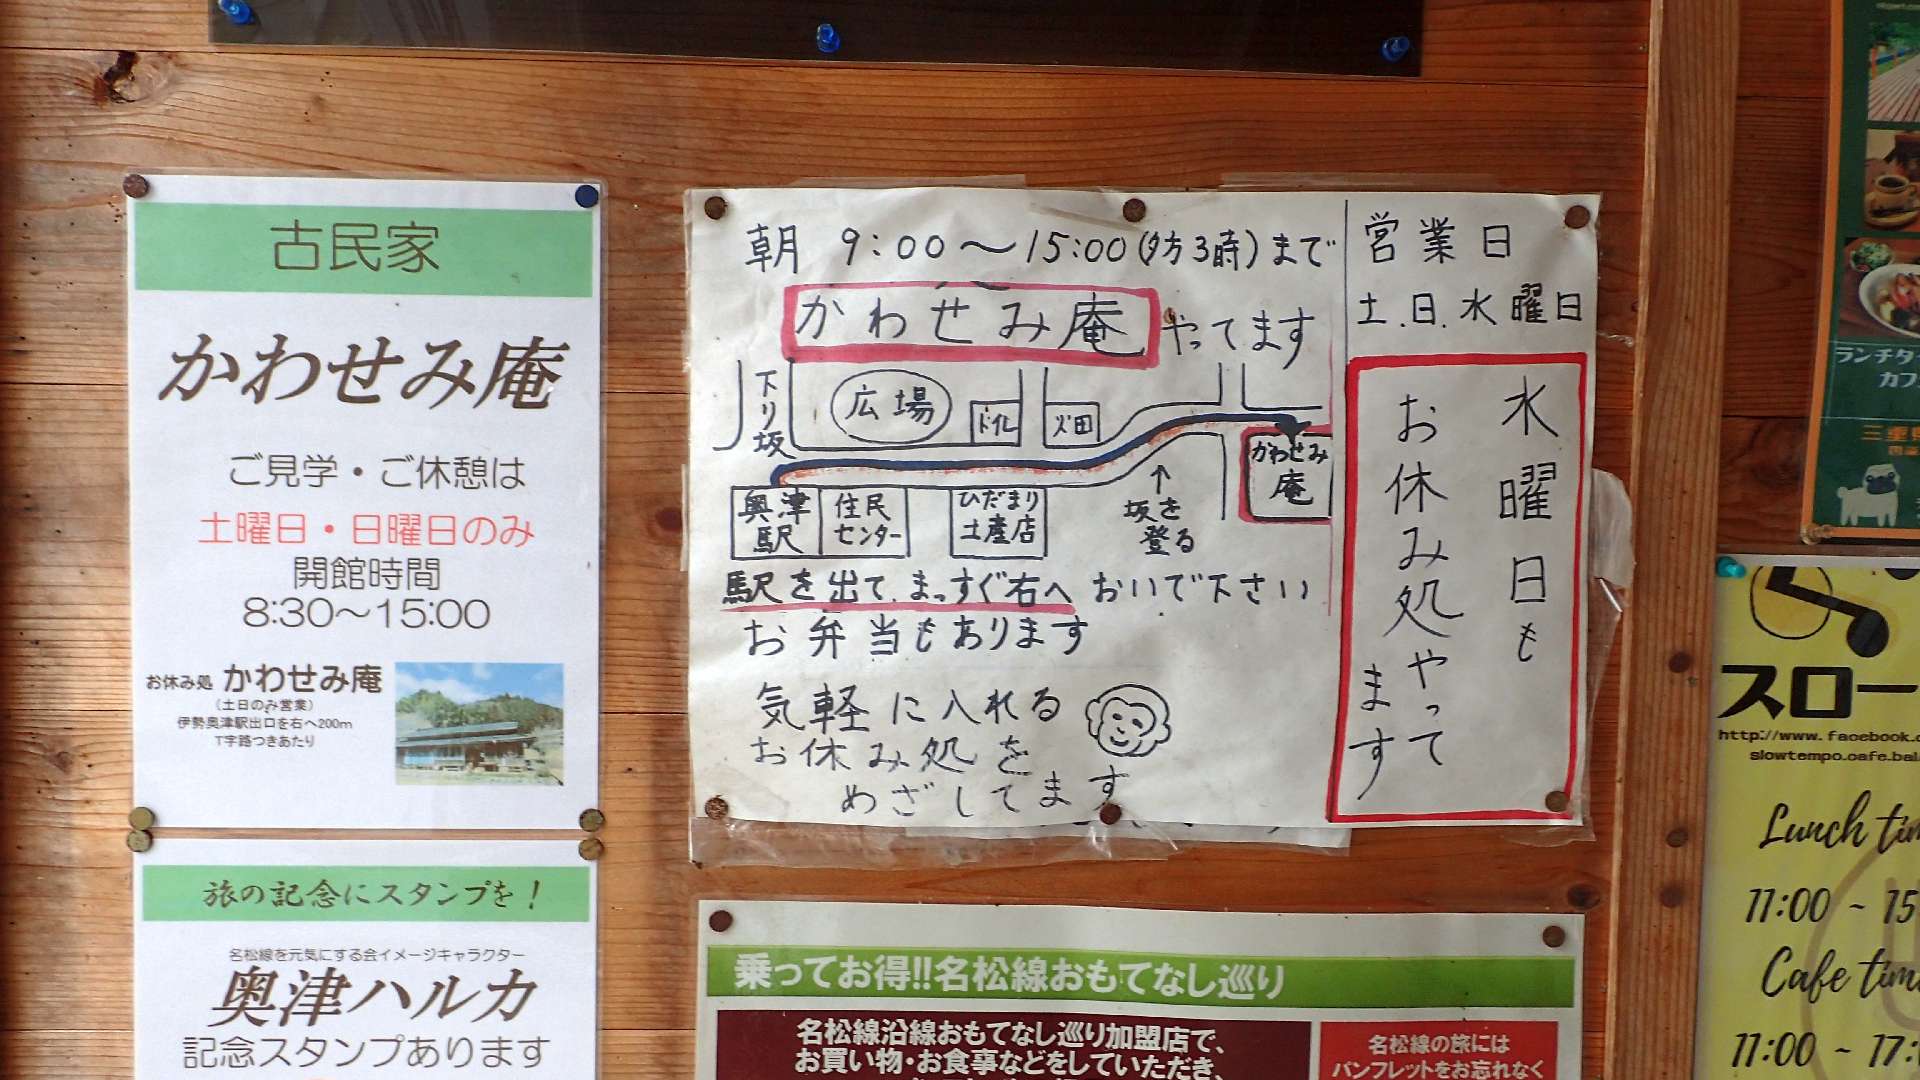 古民家
かわせみ庵
ご見学・ご休憩は
土曜日・日曜日のみ
開館時間
8:30～15:00
お休み処 かわせみ庵
(土日のみ営業)
伊勢奥津駅出口を右へ200m
T字路つきあたり
旅の記念にスタンプを！
名松線を元気にする会イメージキャラクター
奥津ハルカ
記念スタンプあります
朝 9:00～15:00(夕方3時)まで
かわせみ庵 やてます
下り坂
広場
トイレ
畑
かわせみ
庵
奥津
駅
住民
センター
ひだまり
土産店
坂を
登る
駅を出て、まっすぐ右へ おいで下さい
お弁当もあります
気軽に入れる
お休み処を
めざしてます
営業日
土.日.水曜日
水曜日も
お休み処やって
ます
乗ってお得!!名松線おもてなし巡り
名松線沿線おもてなし巡り加盟店で、
お買い物・お食事などをしていただき、
名松線の旅には
パンフレットをお忘れなく
ランチタ
カフ
三重県
スロー
http://www.facebook.c
slowtempo.cafe.bal
Lunch tim
11:00 ~ 15
Cafe time
11:00 ~ 17: